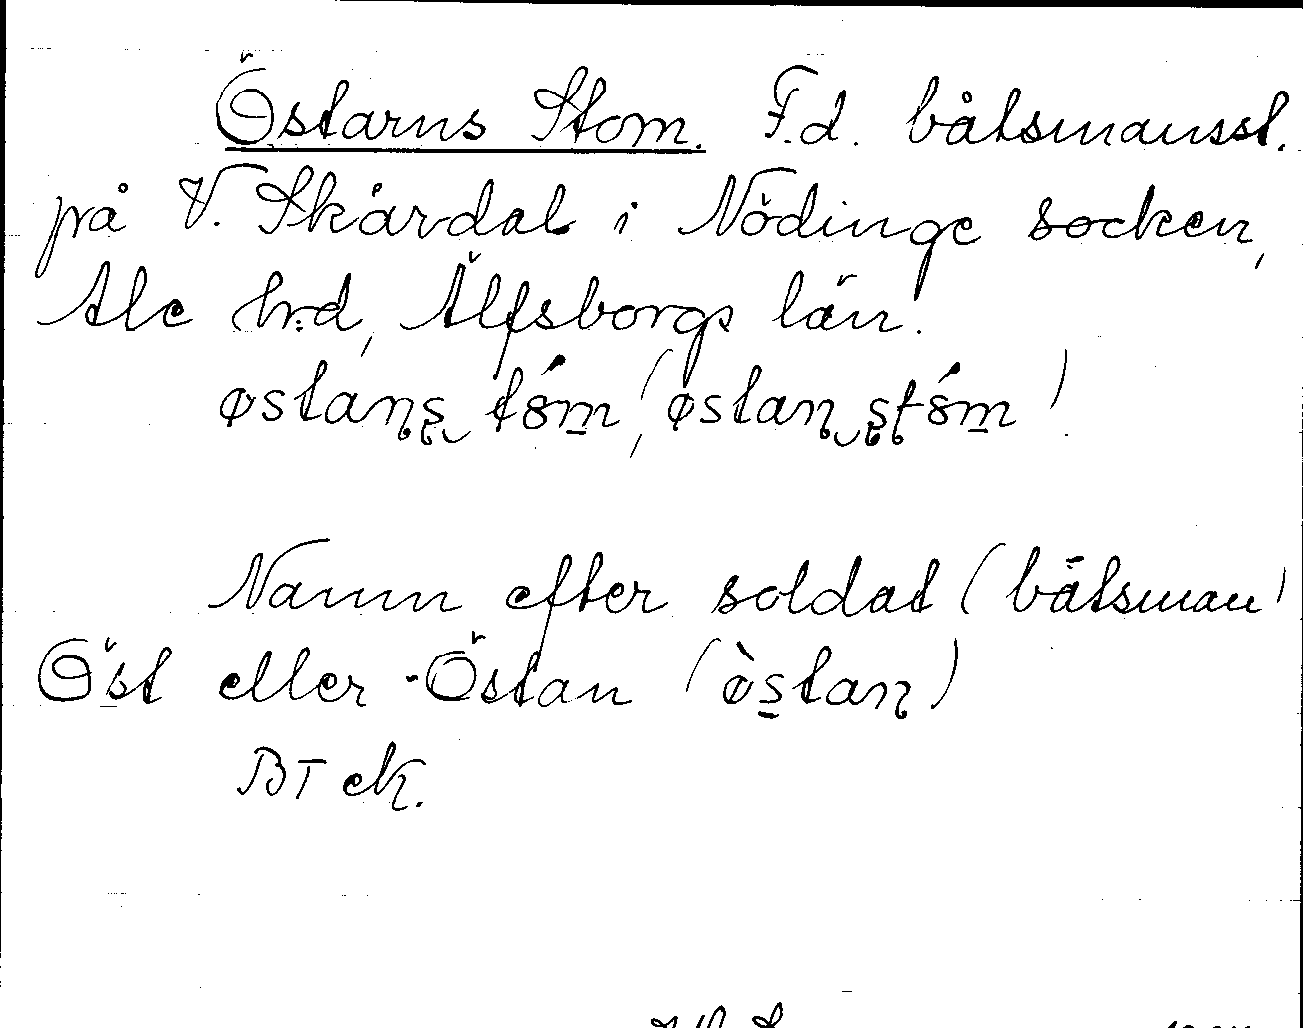 Östarns Stom. F.d. båtsmansst.
på V. Skårdal i Nödinge socken,
Ale h:d, Älfsborgs län.
østaɳʂ tóm, (østaɳ ʂʈóm)
Namn efter soldat (båtsman)
Öst eller Östan (òstaɳ)